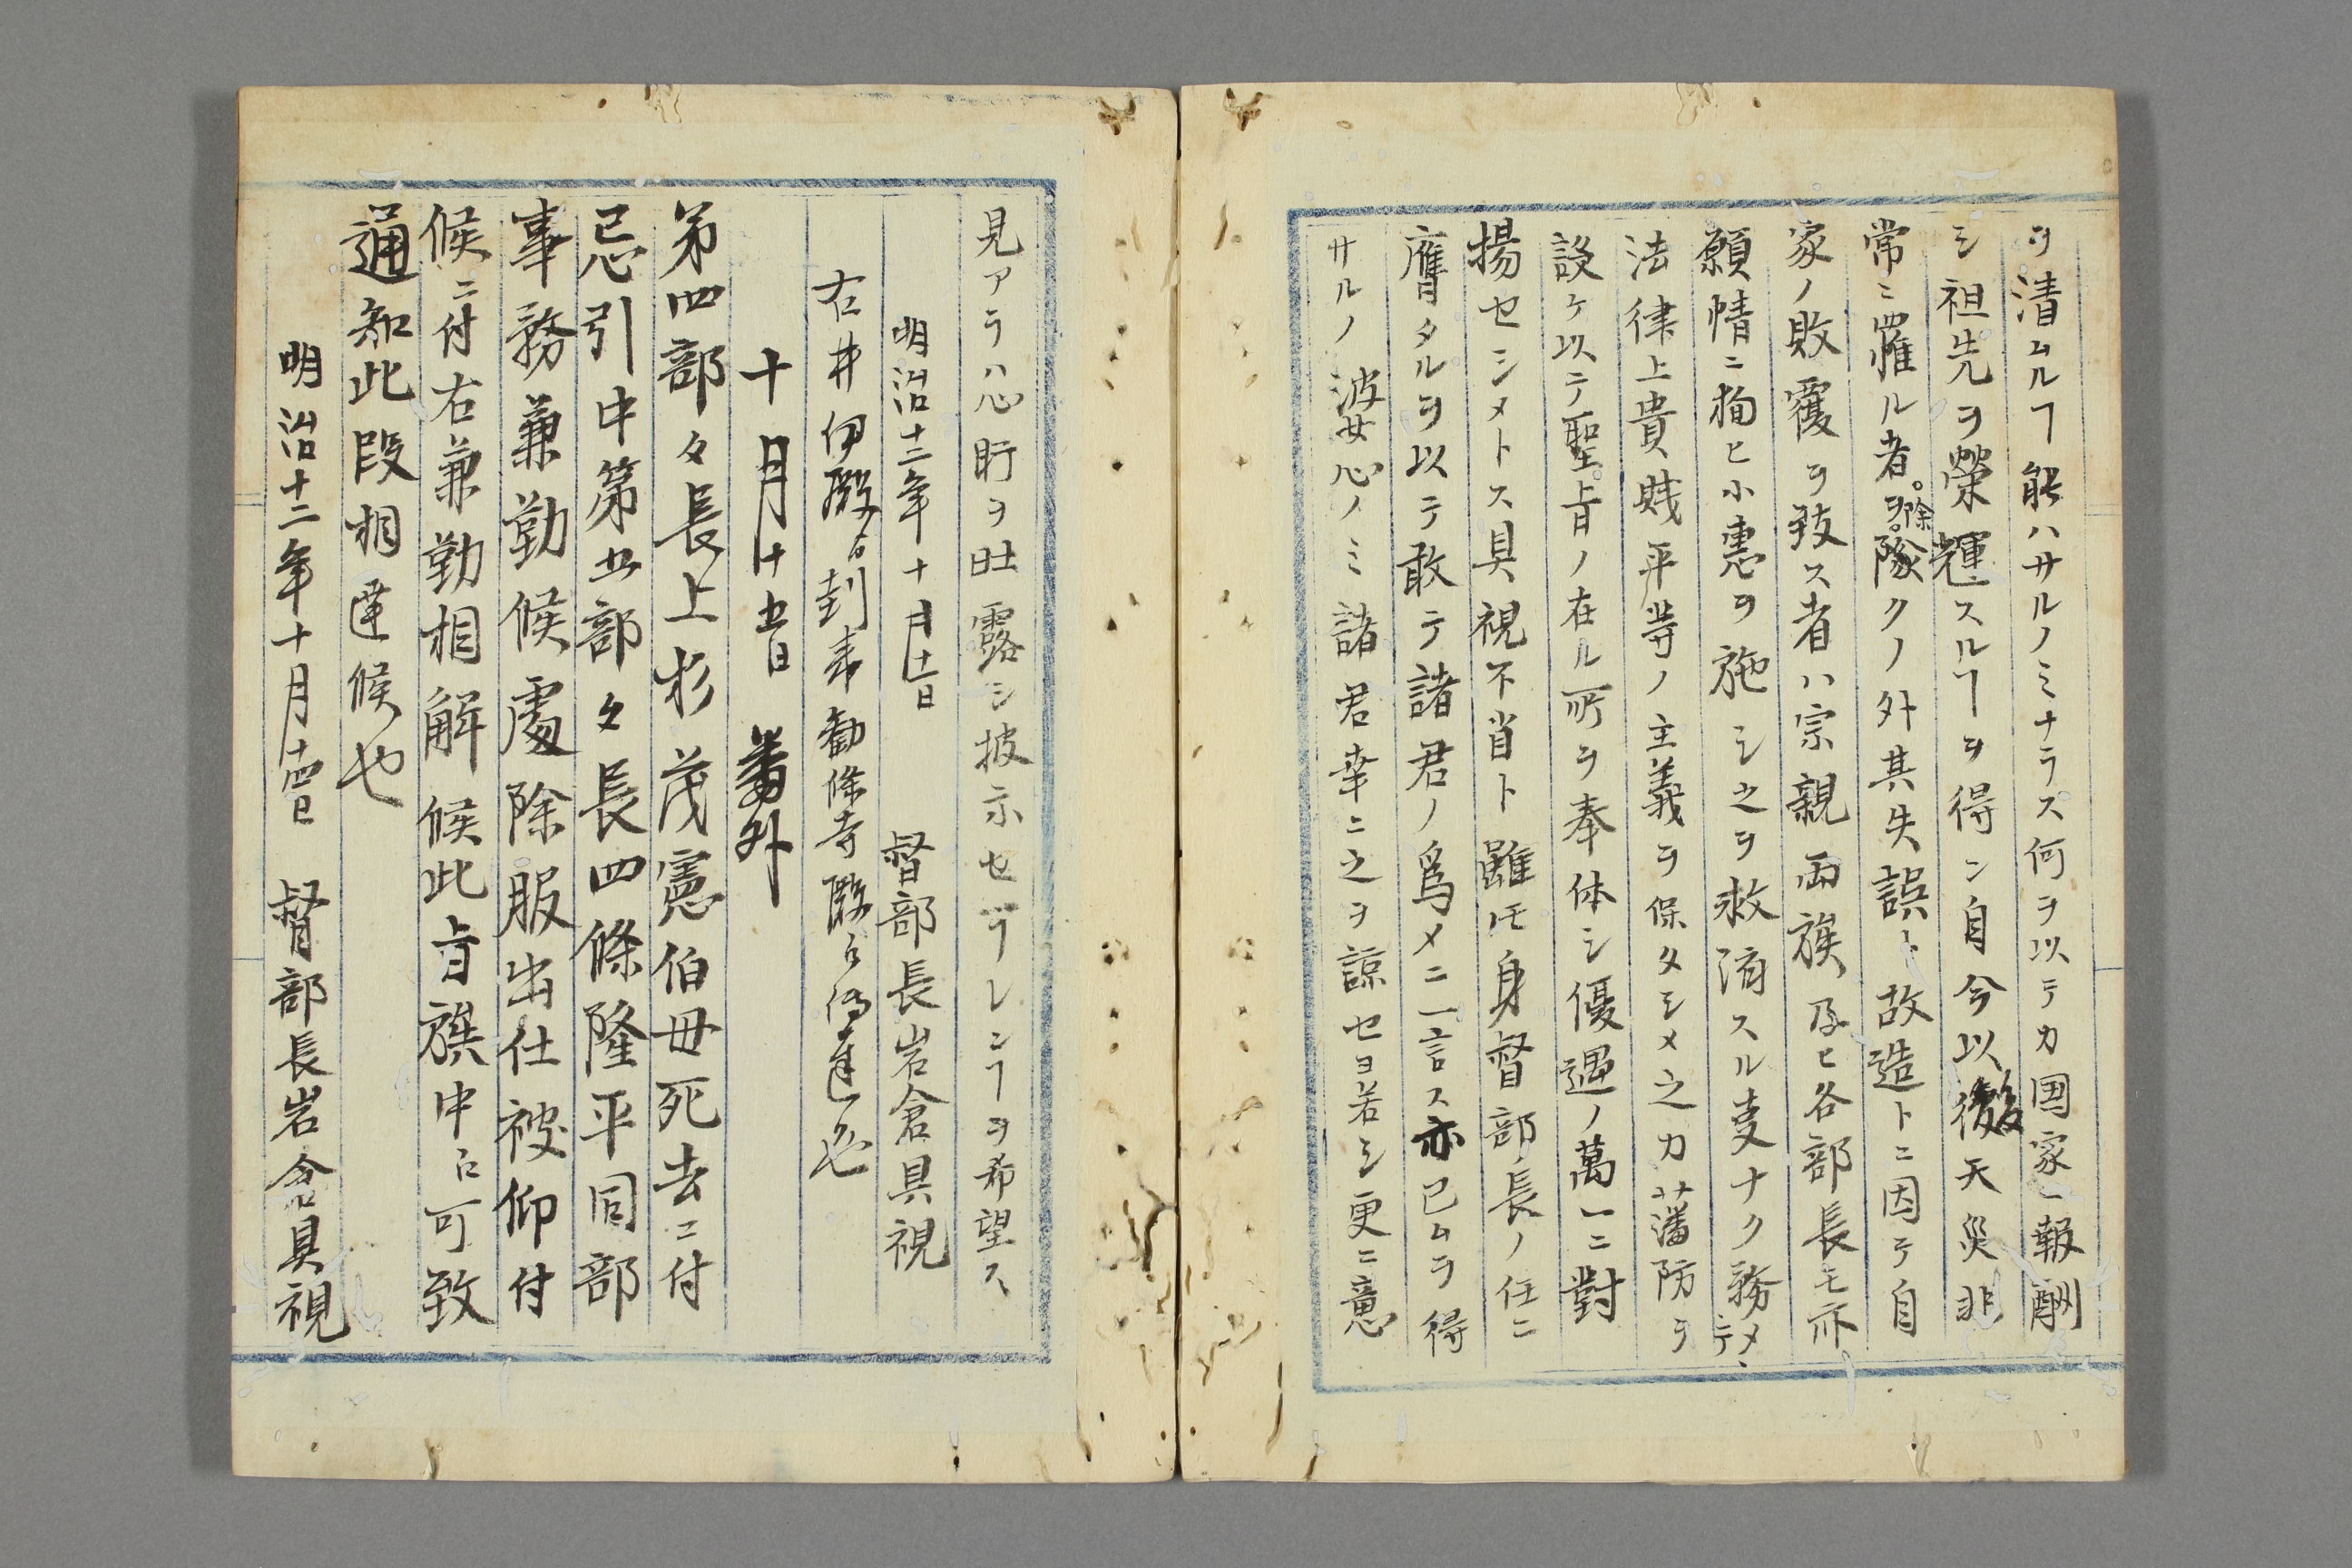 ヲ清ムルヿ能ハサルノミナラス何ヲ以テカ国家ニ報酬
シ祖先ヲ榮輝スルヿヲ得ン自今以後天災非
常ニ罹ル者ヲ除クノ外其失誤ト故造トニ因テ自
家ノ敗覆ヲ致ス者ハ宗親両族及ヒ各部長モ亦
願情ニ徇ヒ小恵ヲ施シ之ヲ救済スル叓ナク務メテ
法律上貴賎平等ノ主義ヲ保タシメ之カ藩防ヲ
設ケ以テ聖旨ノ在ル所ヲ奉体シ優遇ノ萬一ニ對
揚セシメトス具視不肖ト雖モ身督部長ノ任ニ
膺タルヲ以テ敢テ諸君ノ爲メニ一言ス亦已ムヲ得
サルノ波安心ノミ諸君幸ニ之ヲ諒セヨ若シ更ニ意
見アラハ心肝ヲ吐露シ披示セラレンヿヲ希望ス
明治十二年十月十一日 督部長岩倉具視
右井伊殿ゟ封書勧修寺殿ヘ傳達也
十月十五日 番外
第四部々長上杉茂憲伯母死去ニ付
忌引中第五部々長四條隆平同部
事務兼勤候處除服出仕被仰付
候ニ付右兼勤相解候此旨族中ヘ可致
通知此段相達候也
明治十二年十月十四日 督部長岩倉具視